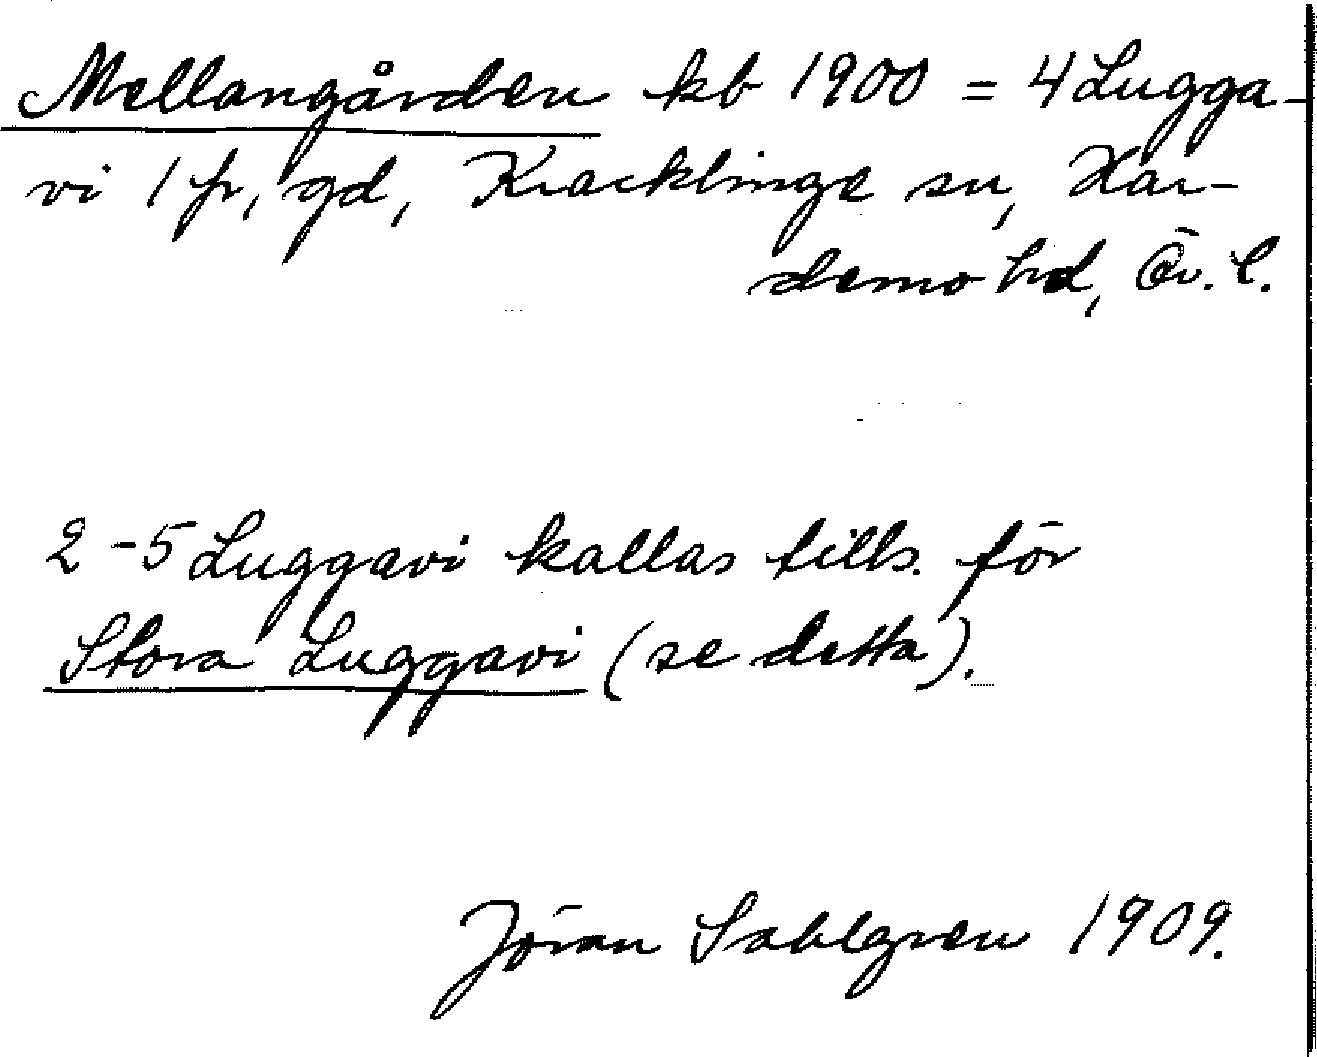 Mellangården kb 1900 = 4 Lugga-
vi 1 fr, gd, Kräcklinge sn, Har-
demo hd, Ör. l.
2-5 Luggavi kallas tills. för
Stora Luggavi (se detta).
Jöran Sahlgren 1909.